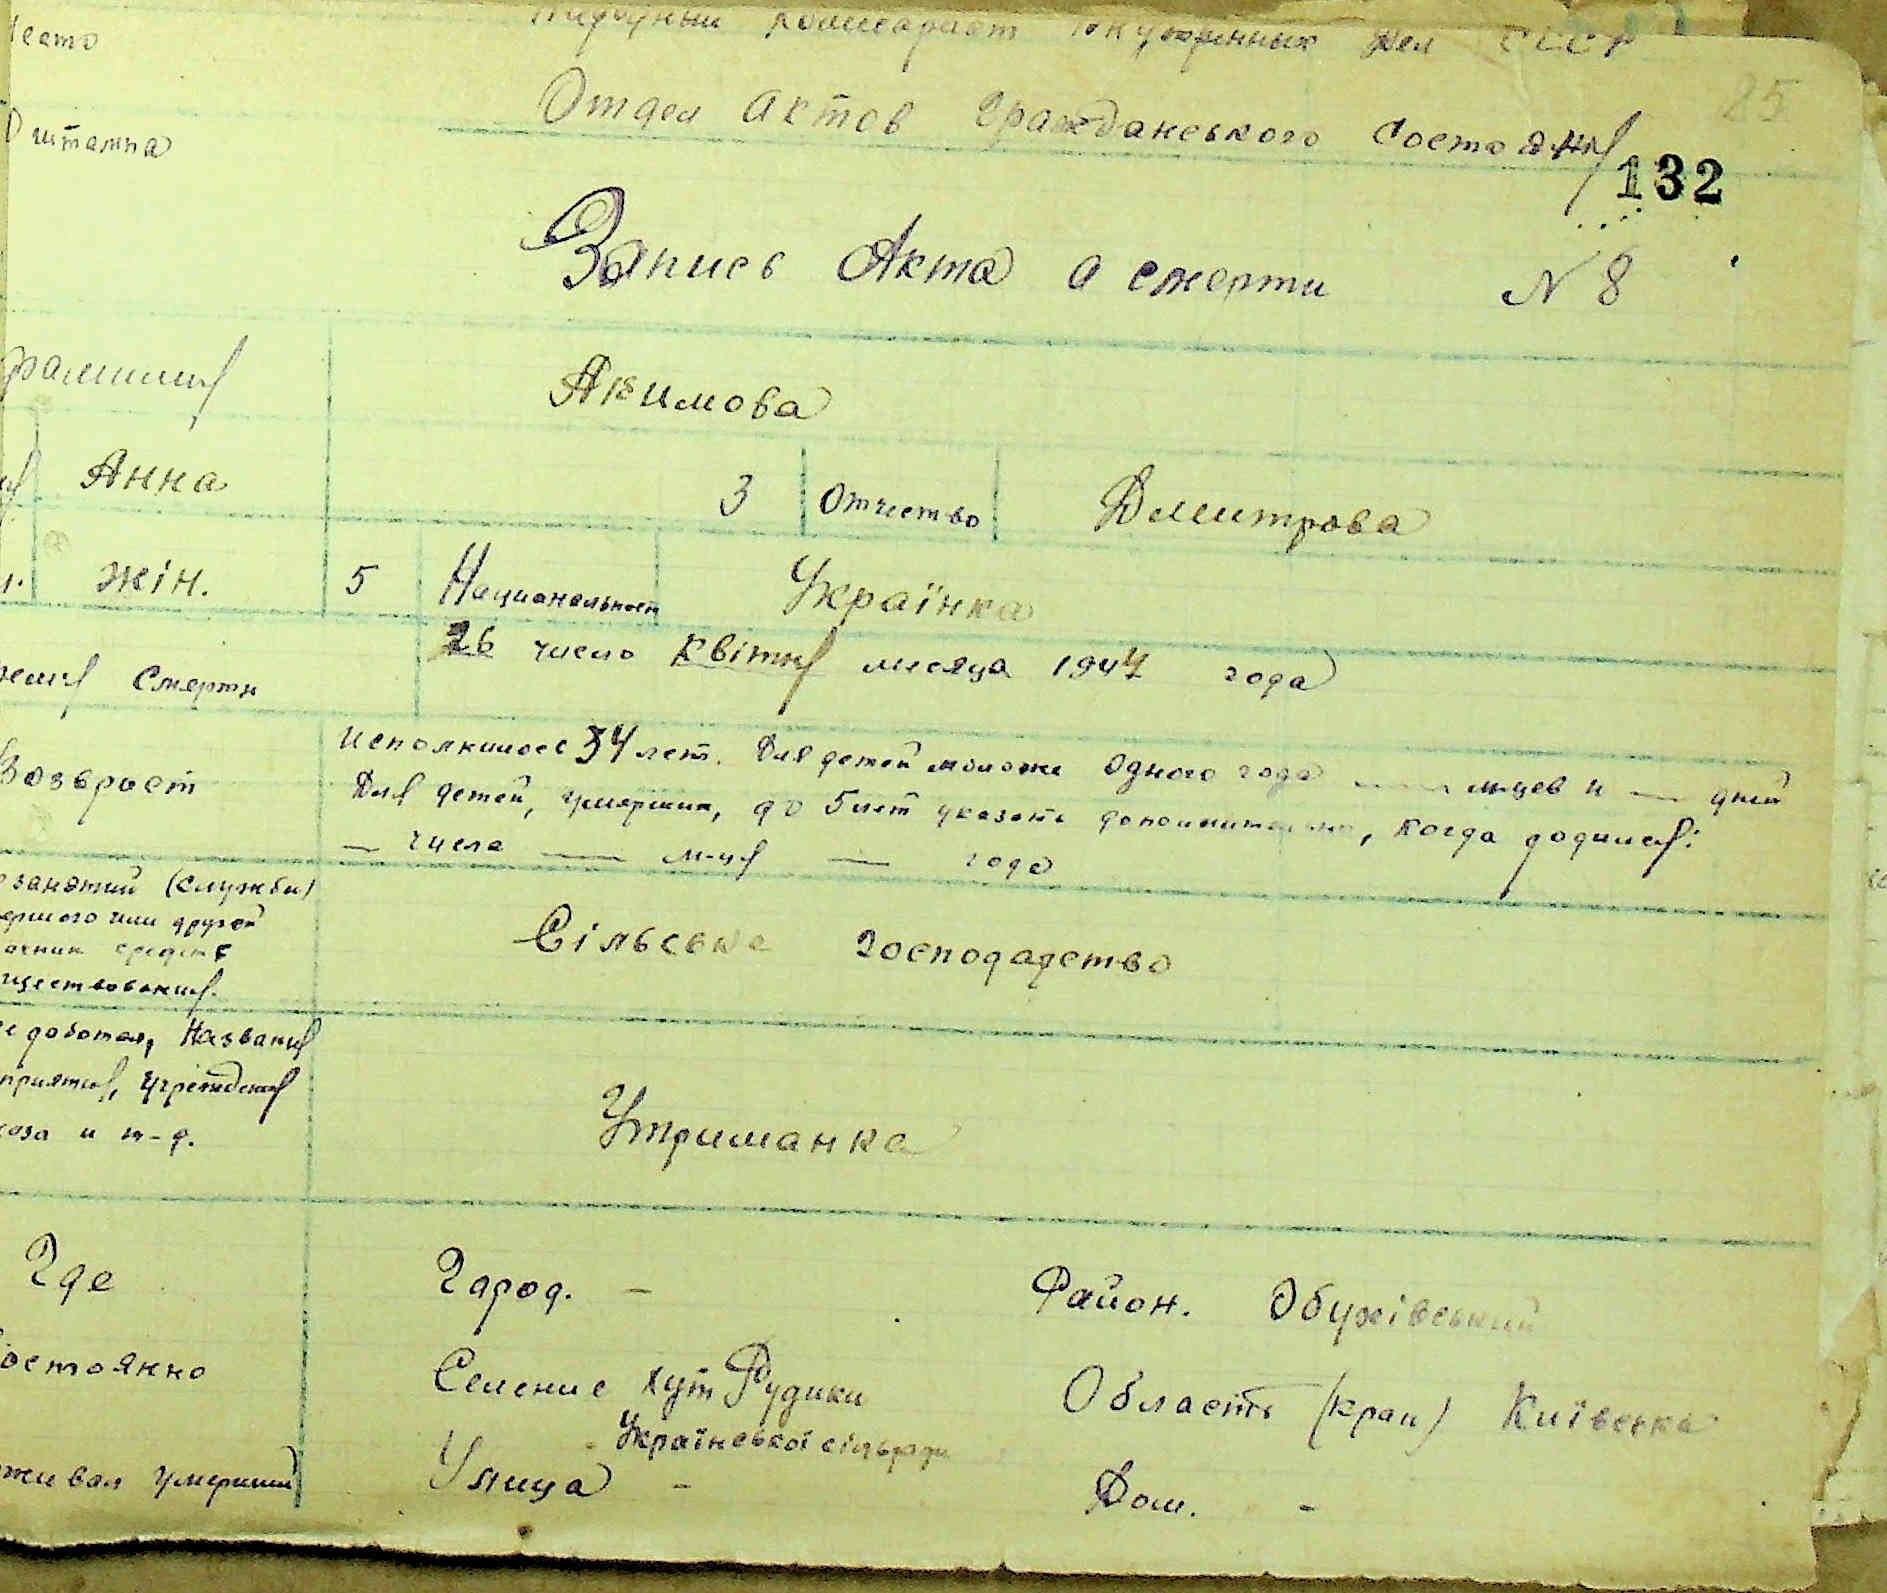 Место
Народный Коммариат Внутренных Дел СССР
25
Отдел Актов Гражданського Состояния
штампа
132
Запись Акта о смерти N 8
Фамилия Акимова
Анна 3 Отчество Дмитрова
жін. 5 Национальност Українка
Смерти 26 число Квітня месяца 1944 года
Возврост Исполнилось 34 лет. Для детей моложе одного года — м-цев и — дней
Для детей, умерших, до 5 лет указать дополнительно, когда родился:
— числа — м-ця — года
занятий (службы)
ершого или другой
очник средств
ществования.
Сільське господадство
работал, Название
приятия, Учреждения
хоза и т-д.
Утриманка
Где Город. - Район. Обухівський
Постоянно Селение хут Рудики Область (край) Київська
Української сільради
живал умерший Улица - Дом. -